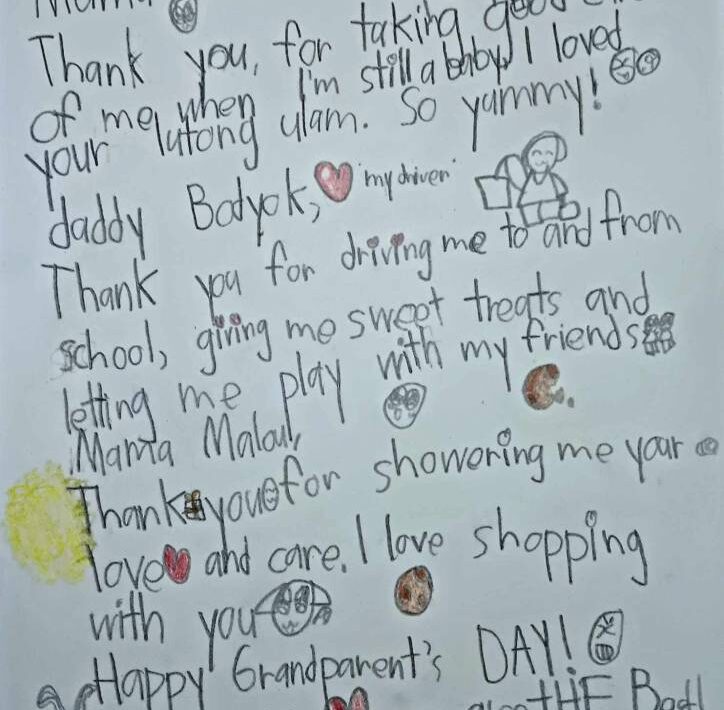 Thank you, for taking good
of me, when I'm still a baby, I loved
your lutong ulam. So yummy!
daddy Bodyok, "my driver"
Thank you for driving me to and from
school, giving me sweet treats and
letting me play with my friends
Mama Malou,
Thank you for showering me your
love and care. I love shopping
with you
Happy Grandparent's DAY!
THE